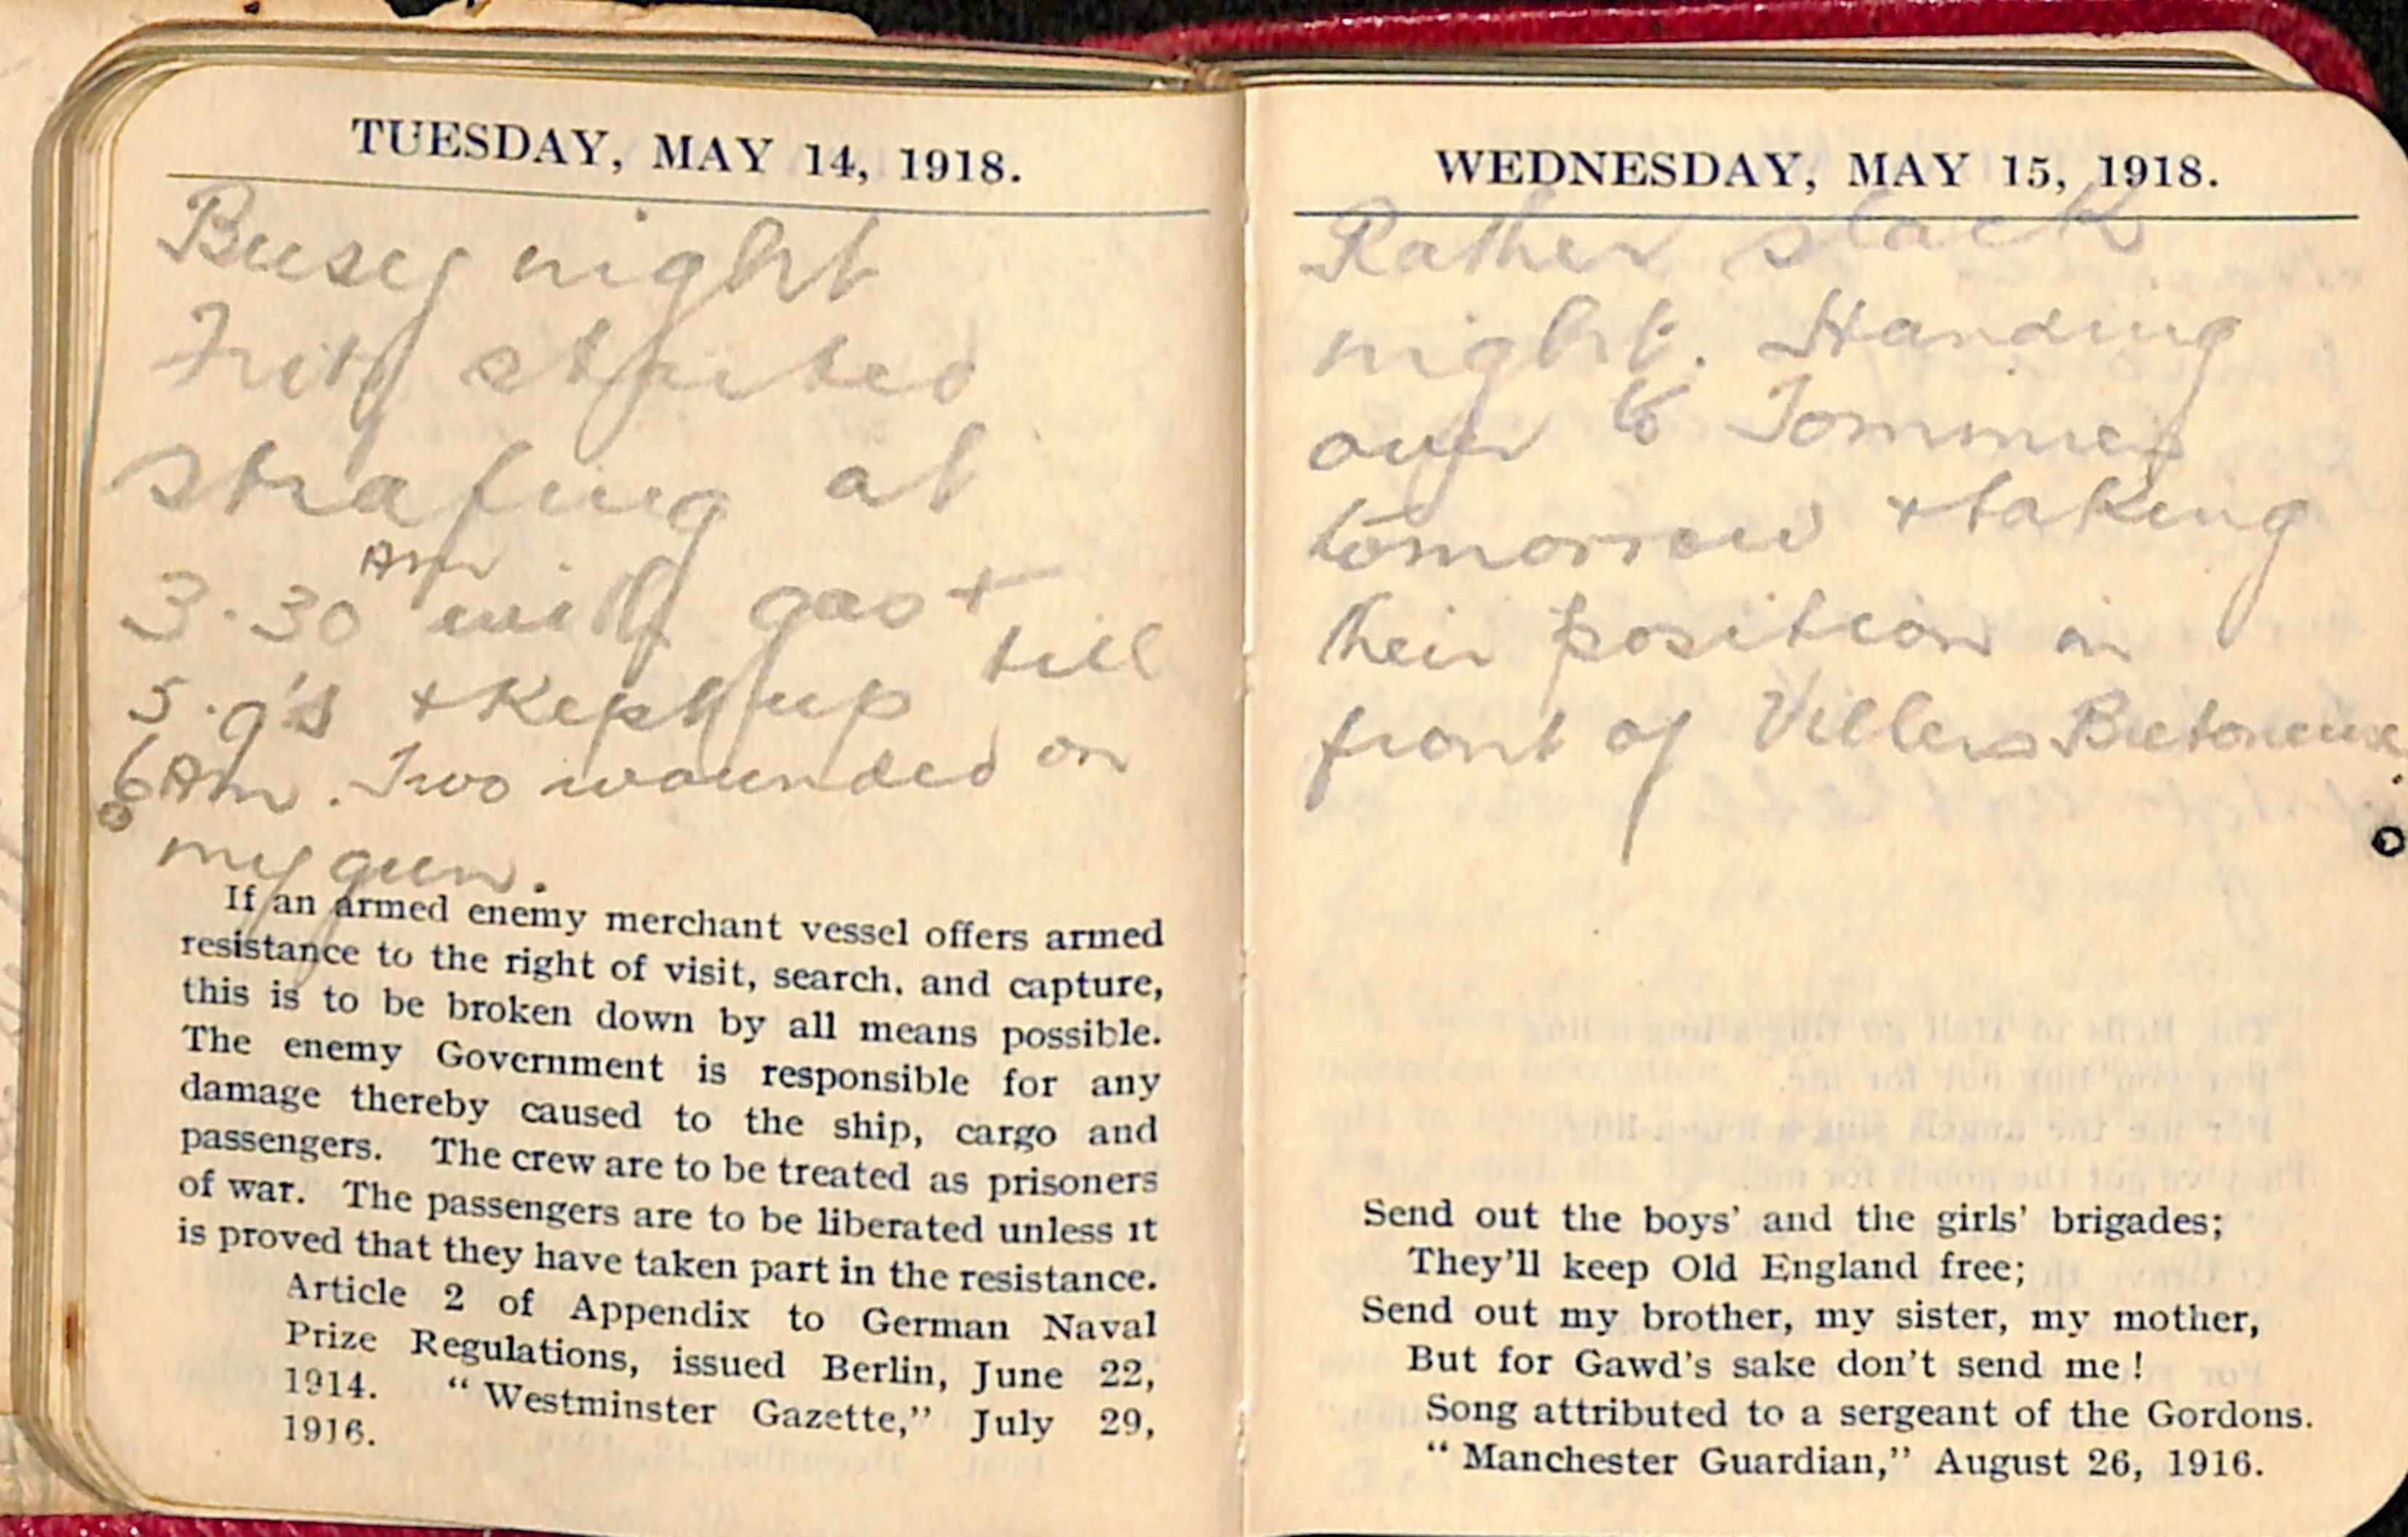 TUESDAY, MAY 14, 1918.
Busy night
Fritz started
strafing at
3.30 Am with gas +
5.9's + kept up till
6 Am. Two wounded on
my gun.
If an armed enemy merchant vessel offers armed
resistance to the right of visit, search, and capture,
this is to be broken down by all means possible.
The enemy Government is responsible for any
damage thereby caused to the ship, cargo and
passengers. The crew are to be treated as prisoners
of war. The passengers are to be liberated unless it
is proved that they have taken part in the resistance.
Article 2 of Appendix to German Naval
Prize Regulations, issued Berlin, June 22,
1914. "Westminster Gazette," July 29,
1916.
WEDNESDAY, MAY 15, 1918.
Rather slack
night. Handing
over to Tommies
tomorrow + taking
their position in
front of Villers Bretoneux.
Send out the boys' and the girls' brigades;
They'll keep Old England free;
Send out my brother, my sister, my mother,
But for Gawd's sake don't send me!
Song attributed to a sergeant of the Gordons.
"Manchester Guardian," August 26, 1916.